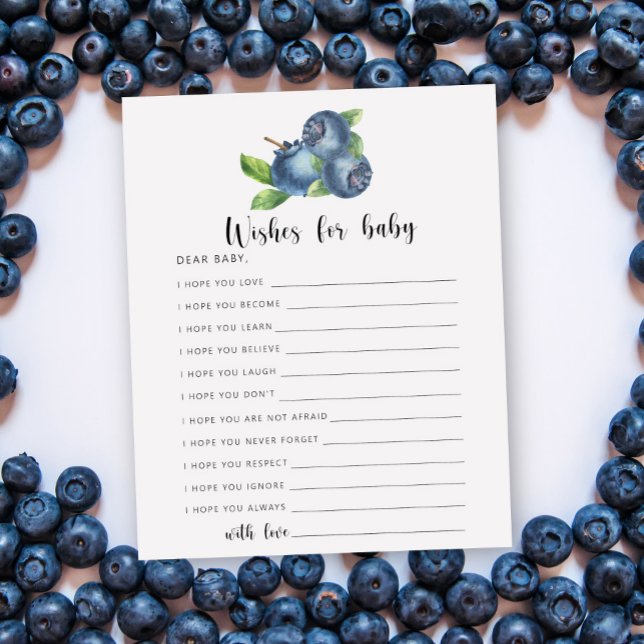 Wishes for baby
DEAR BABY,
I HOPE YOU LOVE
I HOPE YOU BECOME
I HOPE YOU LEARN
I HOPE YOU BELIEVE
I HOPE YOU LAUGH
I HOPE YOU DON'T
I HOPE YOU ARE NOT AFRAID
I HOPE YOU NEVER FORGET
I HOPE YOU RESPECT
I HOPE YOU IGNORE
I HOPE YOU ALWAYS
with love